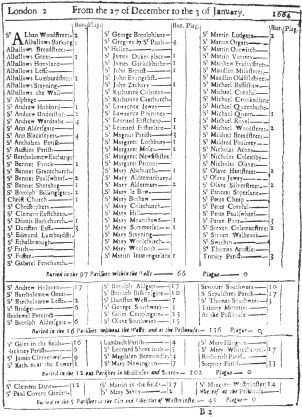 London 2 From the 27 of December to the 3 of January. 1664
Bur. Plag.
Bur. Plag.
Bur. Plag.
St Alban Woodstreet
Alhallows Barking
Alhallows Breadstreet
Alhallows Great
Alhallows Honylane
Alhallows Lesse
Alhallows Lumbardstreet
Alhallows Stayning
Alhallows the Wall
St Alphage
St Andrew Hubbard
St Andrew Undershaft
St Andrew Wardrobe
St Ann Aldersgate
St Ann Blackfryers
St Antholins Parish
St Austins Parish
St Bartholomew Exchange
St Bennet Fynck
St Bennet Gracechurch
St Bennet Paulswharf
St Bennet Sherehog
St Botolph Billingsgate
Christ Church
St Christophers
St Clement Eastcheap
St Dionis Backchurch
St Dunstan East
St Edmund Lumbardstr.
St Ethelborough
St Faith
St Foster
St Gabriel Fenchurch
St George Botolphlane
St Gregories by St Pauls
St Hellen
St James Dukes place
St James Garlickhithe
St John Baptist
St John Evangelist
St John Zachary
St Katharine Coleman
St Katharine Creechurch
St Lawrence Jewry
St Lawrence Pountney
St Leonard Eastcheap
St Leonard Fosterlane
St Magnus Parish
St Margaret Lothbury
St Margaret Moses
St Margaret Newfishstreet
St Margaret Pattons
St Mary Abchurch
St Mary Aldermanbury
St Mary Aldermary
St Mary le Bow
St Mary Bothaw
St Mary Colechurch
St Mary Hill
St Mary Mounthaw
St Mary Sommerset
St Mary Stayning
St Mary Woolchurch
St Mary Woolnoth
St Martin Iremongerlane
St Martin Ludgate
St Martin Orgars
St Martin Outwitch
St Martin Vintrey
St Matthew Fridaystreet
St Maudlin Milkstreet
St Maudlin Oldfishstreet
St Michael Bassishaw
St Michael Cornhil
St Michael Crookedlane
St Michael Queenhithe
St Michael Quern
St Michael Royal
St Michael Woodstreet
St Mildred Breadstreet
St Mildred Poultrey
St Nicholas Acons
St Nicholas Coleabby
St Nicholas Olaves
St Olave Hartstreet
St Olave Jewry
St Olave Silverstreet
St Pancras Soperlane
St Peter Cheap
St Peter Cornhil
St Peter Paulswharf
St Peter Poor
St Steven Colemanstreet
St Steven Walbrook
St Swithin
St Thomas Apostle
Trinity Parish
Buried in the 97 Parishes within the Walls 66 Plague 0
St Andrew Holborn
St Bartholomew Great
St Bartholomew Lesse
St Bridget
Bridewel Precinct
St Botolph Aldersgate
St Botolph Aldgate
St Botolph Bishopsgate
St Dunstan West
St George Southwark
St Giles Cripplegate
St Olave Southwark
Saviours Southwark
St Sepulchres Parish
St Thomas Southwark
Trinity Minories
At the Pesthouse
Buried in the 16 Parishes without the Walls and at the Pesthouse 136 Plague 0
St Giles in the fields
Hackney Parish
St James Clerkenwel
St Kath. near the Tower
Lambeth Parish
St Leonard Shoreditch
St Magdalen Bermondsey
St Mary Newington
St Mary Islington
St Mary Whitechappel
Rothorith Parish
Stepney Parish
Buried in the 12 out Parishes in Middlesex and Surrey Plague
St Clement Danes
St Paul Covent Garden
St Martin in the fields
St Mary Savoy
St Margaret Westminster
Whereof at the Pesthouse
Buried in the 5 Parishes in the City and Liberties of Westminster Plague
B 2